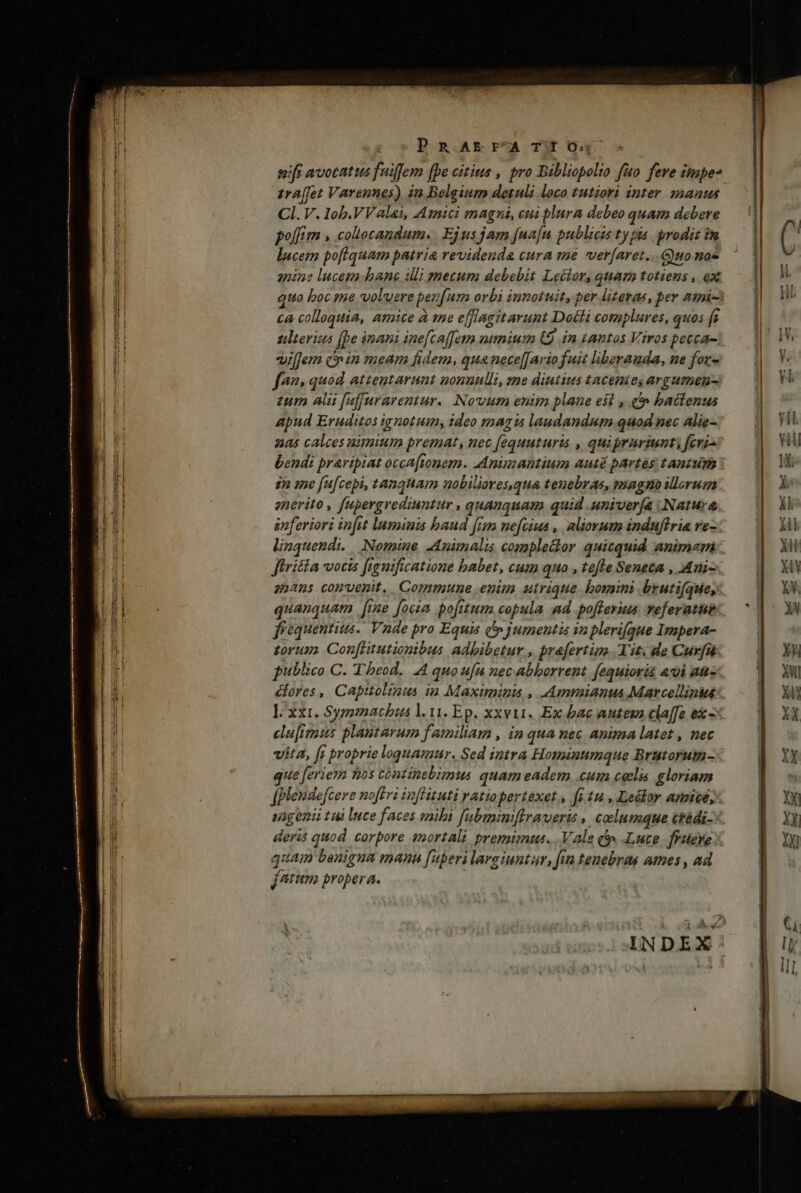 PRÆFATIO.
niſi avocatus fuiſſem ſpe citius, pro Bibliopolio ſuo fere impe-
traſſet Varennes) in Belgium detuli loco tutiori inter manus
Cl. V. Ioh. VValæi, Amici magni, cui plura debeo quam debere
poſſim, collocandum. Ejus jam ſuaſu publicis typis prodit in
lucem poſtquam patria revidenda cura me verſaret. Quo no-
mine lucem hanc illi mecum debebit Lector, quam totiens, ex
quo hoc me volvere penſum orbi innotuit, per literas, per ami-
ca colloquia, amice à me efflagitarunt Docti complures, quos ſi
ulterius ſpe inani ineſcaſſem nimium & in tantos Viros pecca-
viſſem & in meam fidem, qua neceſſario fuit liberanda, ne for-
ſan, quod attentarunt nonnulli, me diutius tacente, argumen-
tum alii ſuffurarentur. Novum enim plane est, & hactenus
apud Eruditos ignotum, ideo magis laudandum quod nec alie-
nas calces nimium premat, nec ſequuturis, qui pruriunt, ſcri-
bendi præripiat occaſionem. Animantium autē partes tantum
in me ſuſcepi, tanquam nobiliores, qua tenebras, magno illorum
merito, ſupergrediuntur, quanquam quid univerſa Natura
inferiori inſit luminis haud ſim neſcius, aliorum induſtria re-
linquendi. Nomine Animalis complector quicquid animam
ſtricta vocis ſignificatione habet, cum quo, teſte Seneca, Ani-
mans convenit. Commune enim utrique homini brutiſque,
quanquam ſine ſocia poſitum copula ad poſterius referatur
frequentius. Vnde pro Equis & jumentis in pleriſque Impera-
torum Conſtitutionibus adhibetur, præſertim Tit. de Curſu
publico C. Theod. A quo uſu nec abhorrent ſequioris ævi au-
ctores, Capitolinus in Maximinis, Ammianus Marcellinus
l. xxi. Symmachus l. 11. Ep. xxvii. Ex hac autem claſſe ex-
cluſimus plantarum familiam, in qua nec anima latet, nec
vita, ſi proprie loquamur. Sed intra Hominumque Brutorum-
que ſeriem nos continebimus quam eadem cum cœlis gloriam
ſplendeſcere noſtri inſtituti ratio pertexet, ſi tu, Lector amice,
ingenii tui luce faces mihi ſubminiſtraveris, cœlumque credi-
deris quod corpore mortali premimus. Vale & Luce fruere
quam benigna manu ſuperi largiuntur, ſin tenebras ames, ad
fatum propera.
INDEX